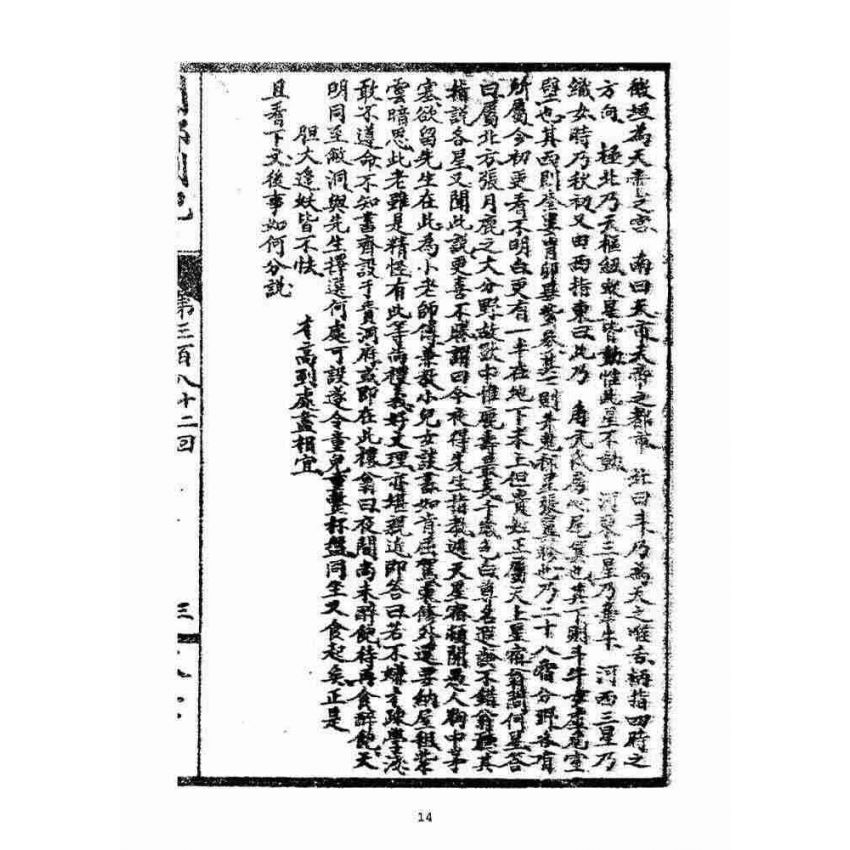 微垣為天帝之宮 南曰天市天帝之都市 北曰斗乃為天之喉舌柄指四時之
方向 極北乃天樞紐眾星皆動惟此星不動 河東三星乃牽牛 河西三星乃
織女時乃秋初又由西指東曰此乃 角亢氐房心尾箕也其下則斗牛女虛危室
壁也其西則奎婁胃昴畢觜參其 則井鬼柳星張翼軫也乃二十八宿分野各有
所屬今初更看不明白更有一半在地下未上但貴姓正屬天上星宿翁問何星答
曰屬北方張月鹿之大分野故獸中惟鹿壽最長千歲色白尊名遐 不錯翁聽其
指說各星又聞此說更喜不勝謂曰今夜得先生指教週天星宿頓開愚人胸中茅
塞欲留先生在此為小老師傅兼教小兒女讀書如肯屈駕東修外還要納屋租葉
雲暗思此老雖是精怪有此等尚禮義好文理亦堪親近即答曰若不嫌才疎學淺
敢不遵命不知書齊設于貴洞府或即在此樓翁曰夜間尚未醉飽待再食醉飽天
明同至敝洞與先生擇選何處可設遂令童兒重 杯盤同生又食起矣正是
胆大逢妖皆不怯 才高到處盡相宜
且看下文後事如何分說
第三百八十二回
三
14